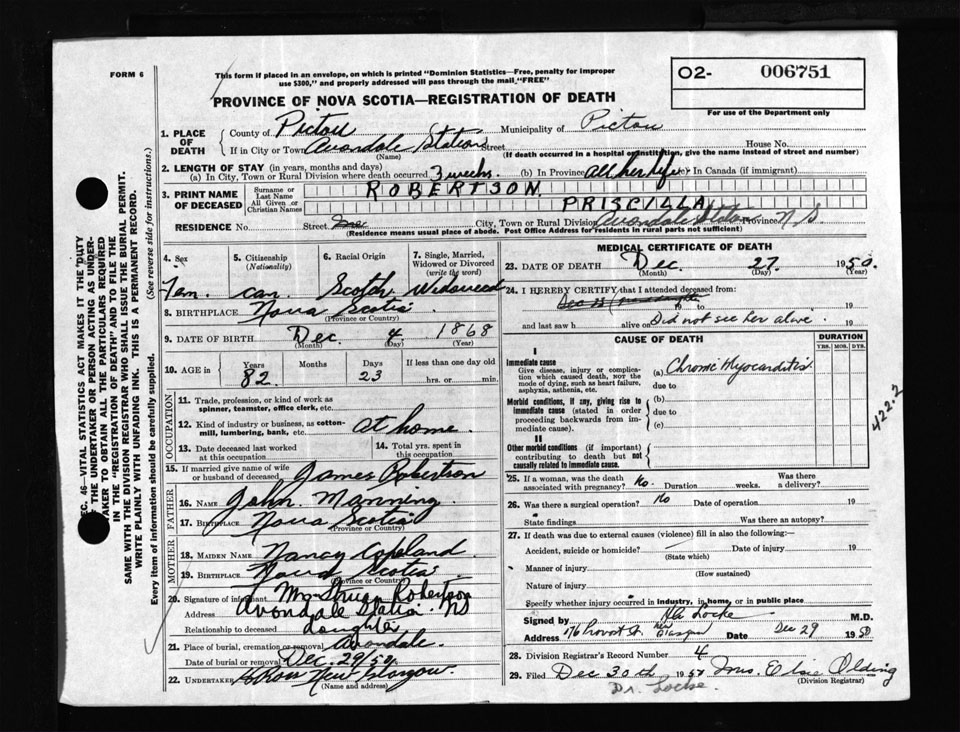 FORM 6
This form if placed in an envelope, on which is printed "Dominion Statistics—Free, penalty for improper
use $300," and properly addressed will pass through the mail "FREE"
02- 006751
For use of the Department only
PROVINCE OF NOVA SCOTIA—REGISTRATION OF DEATH
1. PLACE OF DEATH
County of Pictou Municipality of Pictou
If in City or Town Avondale Station Street House No.
(Name) (If death occurred in a hospital or institution, give the name instead of street and number)
2. LENGTH OF STAY (in years, months and days)
(a) In City, Town or Rural Division where death occurred 3 weeks. (b) In Province All her life (c) In Canada (if immigrant)
3. PRINT NAME OF DECEASED
Surname or Last Name ROBERTSON
All Given or Christian Names PRISCILLA
RESIDENCE No. Street City, Town or Rural Division Avondale Station Province N.S.
(Residence means usual place of abode. Post Office Address for residents in rural parts not sufficient)
4. Sex
Fem.
5. Citizenship
(Nationality)
can.
6. Racial Origin
Scotch
7. Single, Married,
Widowed or Divorced
(write the word)
Widowed
8. BIRTHPLACE Nova Scotia
(Province or Country)
9. DATE OF BIRTH Dec. 4 1868
(Month) (Day) (Year)
10. AGE in Years Months Days If less than one day old
82 23 hrs. or min.
OCCUPATION
11. Trade, profession, or kind of work as
spinner, teamster, office clerk, etc.
12. Kind of industry or business, as cotton-
mill, lumbering, bank, etc. At home.
13. Date deceased last worked
at this occupation
14. Total yrs. spent in
this occupation
15. If married give name of wife
or husband of deceased James Robertson
FATHER
16. NAME John Manning
17. BIRTHPLACE Nova Scotia
(Province or Country)
MOTHER
18. MAIDEN NAME Nancy Copeland.
19. BIRTHPLACE Nova Scotia
(Province or Country)
20. Signature of informant Mrs Struan Robertson
Address Avondale Station NS
Relationship to deceased daughter
21. Place of burial, cremation or removal Avondale.
Date of burial or removal Dec. 29/50
22. UNDERTAKER New Glasgow.
(Name and address)
MEDICAL CERTIFICATE OF DEATH
23. DATE OF DEATH Dec. 27 1950.
(Month) (Day) (Year)
24. I HEREBY CERTIFY that I attended deceased from:
19 to 19
and last saw h alive on Did not see her alive. 19
CAUSE OF DEATH
DURATION
YRS. MOS. DYS.
I
Immediate cause
Give disease, injury or complica-
tion which caused death, not the
mode of dying, such as heart failure,
asphyxia, asthenia, etc.
(a) Chronic Myocarditis
due to
Morbid conditions, if any, giving rise to
immediate cause (stated in order
proceeding backwards from im-
mediate cause).
(b)
due to
(c)
II
Other morbid conditions (if important)
contributing to death but not
causally related to immediate cause.
422.2
25. If a woman, was the death
associated with pregnancy? No. Duration weeks. Was there
a delivery?
26. Was there a surgical operation? No Date of operation 19
State findings Was there an autopsy?
27. If death was due to external causes (violence) fill in also the following:—
Accident, suicide or homicide? Date of injury 19
(State which)
Manner of injury
(How sustained)
Nature of injury
Specify whether injury occurred in industry, in home, or in public place
Signed by Locke M.D.
Address 176 Provost St. New Glasgow Date Dec 29 1950
28. Division Registrar's Record Number 4
29. Filed Dec 30th 1950 Mrs. Elsie Olding
(Division Registrar)
Dr. Locke.
SEC. 46—VITAL STATISTICS ACT MAKES IT THE DUTY
OF THE UNDERTAKER OR PERSON ACTING AS UNDER-
TAKER TO OBTAIN ALL THE PARTICULARS REQUIRED
IN THE "REGISTRATION OF DEATH" AND TO FILE THE
SAME WITH THE DIVISION REGISTRAR WHO SHALL ISSUE THE BURIAL PERMIT.
WRITE PLAINLY WITH UNFADING INK. THIS IS A PERMANENT RECORD.
Every item of information should be carefully supplied. (See reverse side for instructions.)